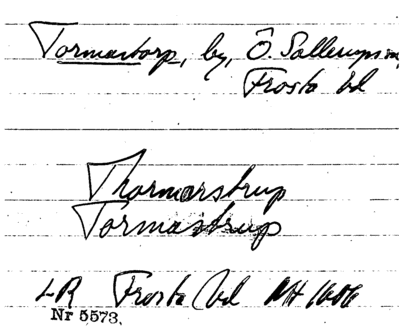 Tormastorp, by, Ö. Sallerups sn,
Frosta hd
Thormarstrup
Tormastrup
LR Frosta hd NH 1606
Nr 5573.